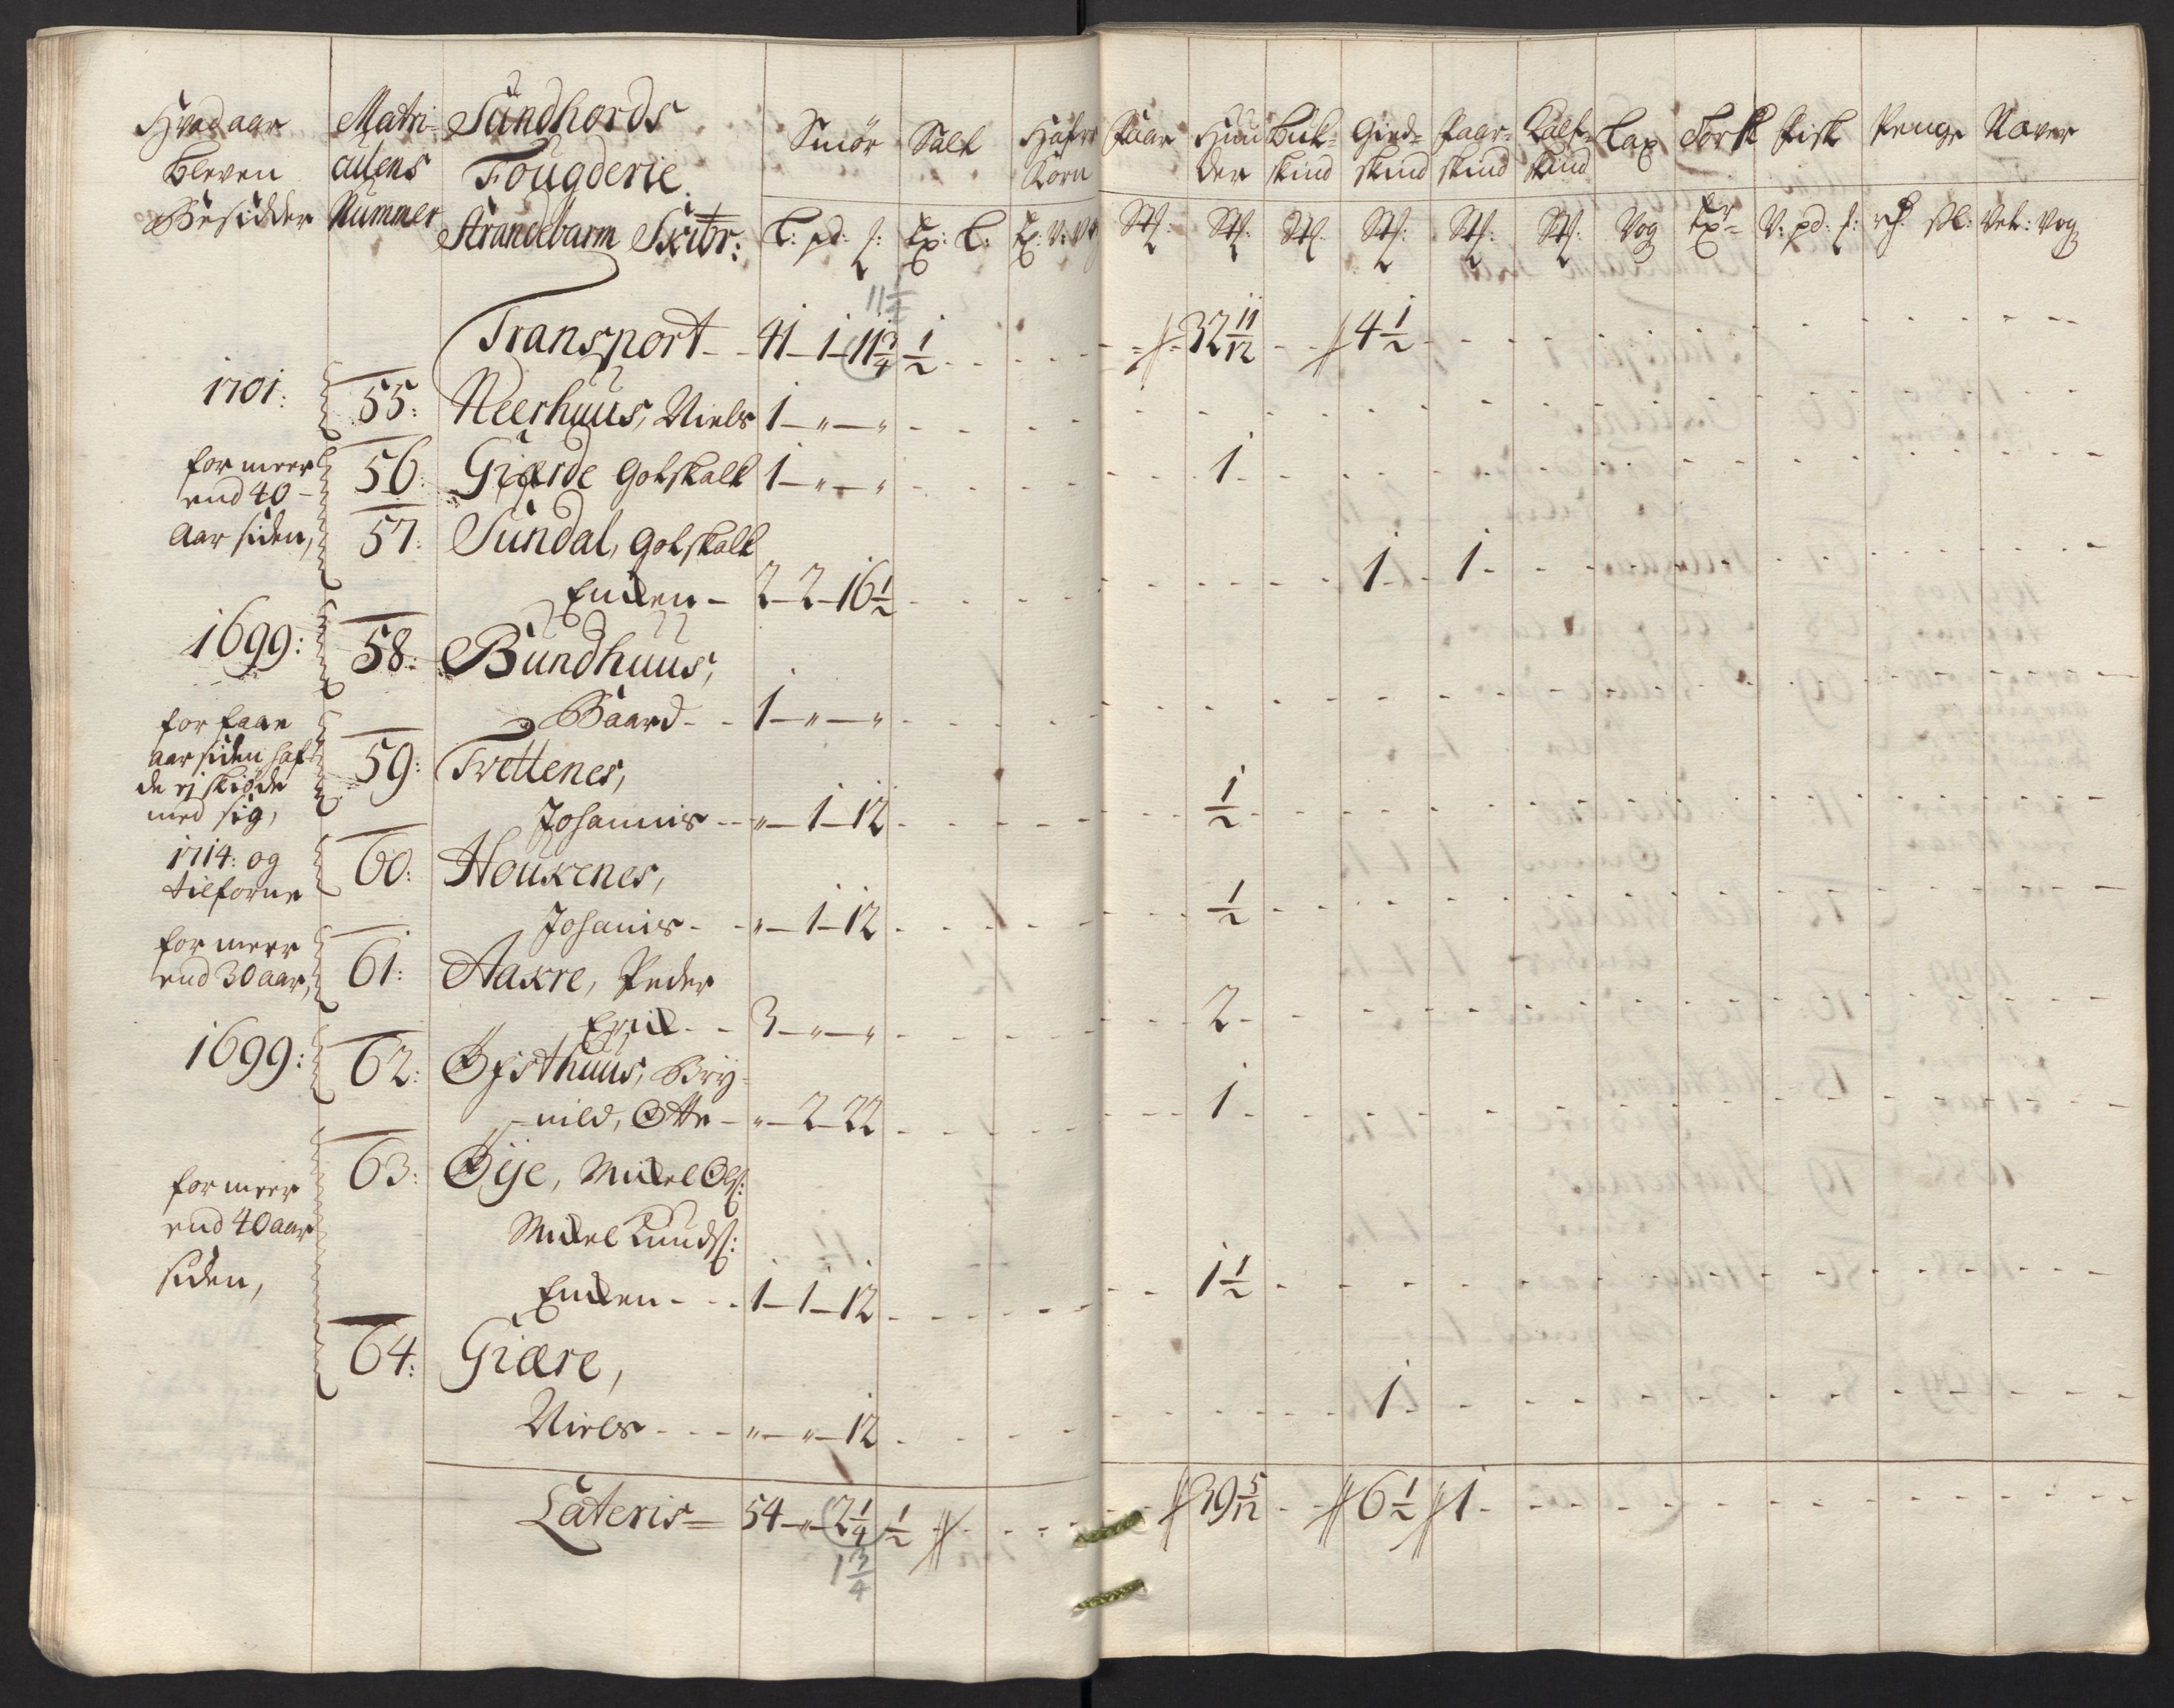 Hvad aar
bleven
Besidder
Matri-
culens
Nummer
Sundhords
Fougderie
Strandebarm Skibr:
Smör
L: pd: :
Salt
Tp: L:
Hafre
Korn
Faar
Stk:
Huu
der
Stk:
Buk-
skind
Stk:
Gied-
skind
Stk:
Faar-
skind
Stk:
Kalf-
skind
Stk:
Lax
Vog
Torsk
Fisk
V: pd:
Penge
Næver
Vet: Vog
11 1/4
Transport - - 41 - 1 - 11 3/4 1/2 - - 32 11/12 - - 4 1/2 - -
1701: 55: Neerhuus, Niels 1 - " - "
for meer
end 40 -
Aar siden,
56: Gierde Gotskalk 1 - " - " - - 1 - -
57: Sundal, Gotskalk
Enken - 2 - 2 - 16 1/2 - - 1 - 1 -
1699: 58: Bundhuus,
Baard - - 1 - " - "
for faae
aar siden haf-
de ej skiöde
med sig,
59: Tvettenes,
Johannis - - " - 1 - 12 - - 1/2 - -
1714: og
tilforne
60: Houkenes,
Johanis - - " - 1 - 12 - - 1/2 - -
for meer
end 30 aar,
61: Aakre, Peder
Erik - - 3 - " - " - - 2 - -
1699: 62: Øfsthuus, Bry-
-nild, Otte - " - 2 - 22 - - 1 - -
for meer
end 40 aar
siden,
63: Øye, Mikel Ols:
Mikel Knuds:
Enken - - 1 - 1 - 12 - - 1 1/2 - -
64: Giære,
Niels - - - " - " - 12 - - 1 - -
Lateris = 54 - " - 2 1/4 1/2 - - 39 5/12 - - 6 1/2 1 - -
1 3/4